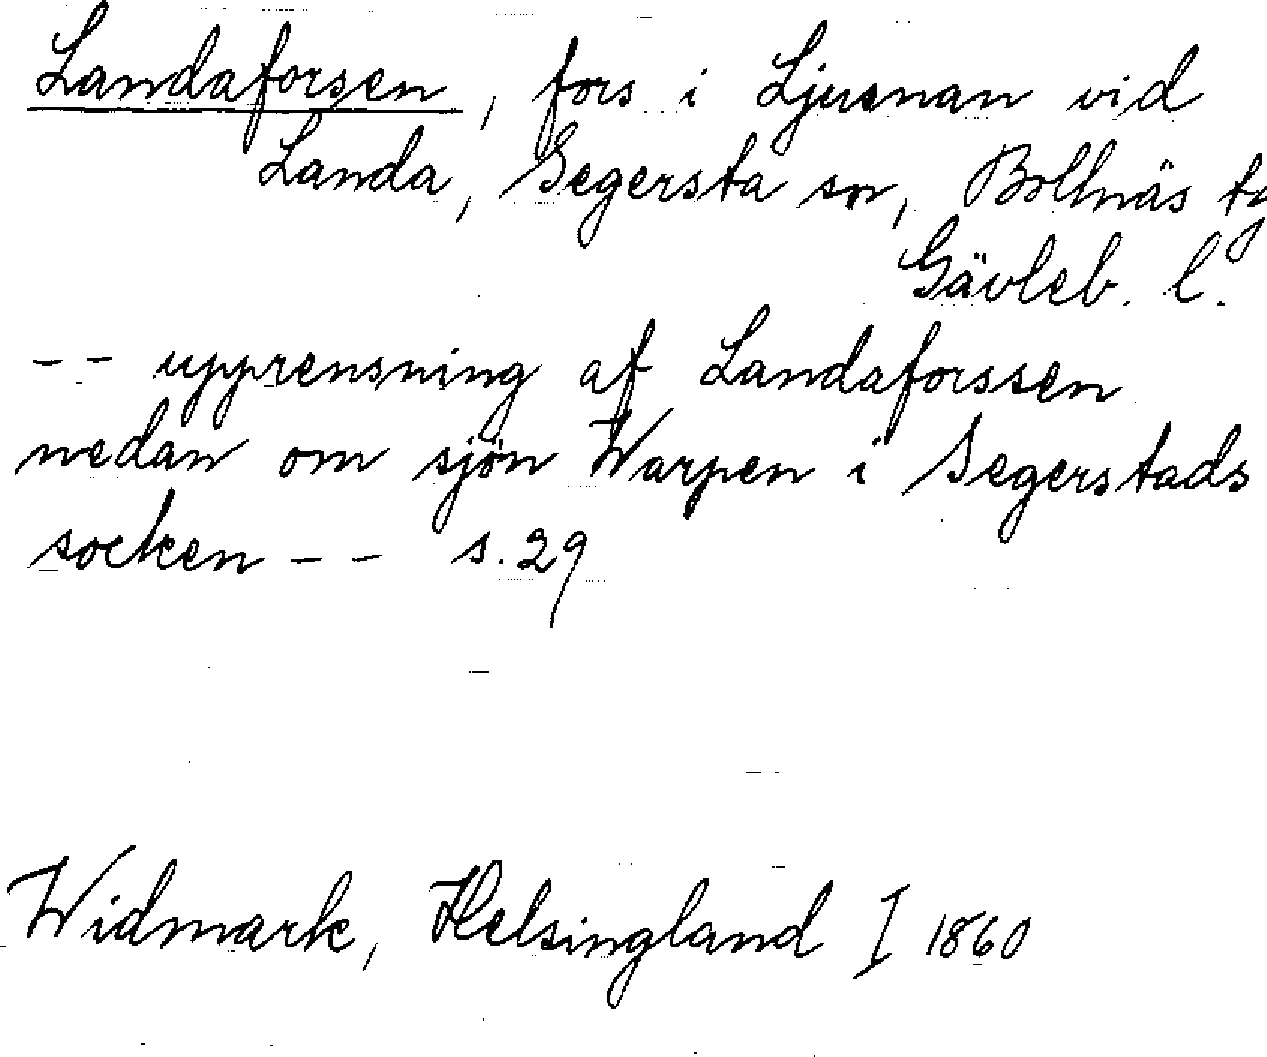 Landaforsen, fors i Ljusnan vid
Landa, Segersta sn, Bollnäs tg
Gävleb. l.
-- upprensning af Landaforssen
nedan om sjön Warpen i Segerstads
socken -- s. 29
Widmark, Helsingland I 1860